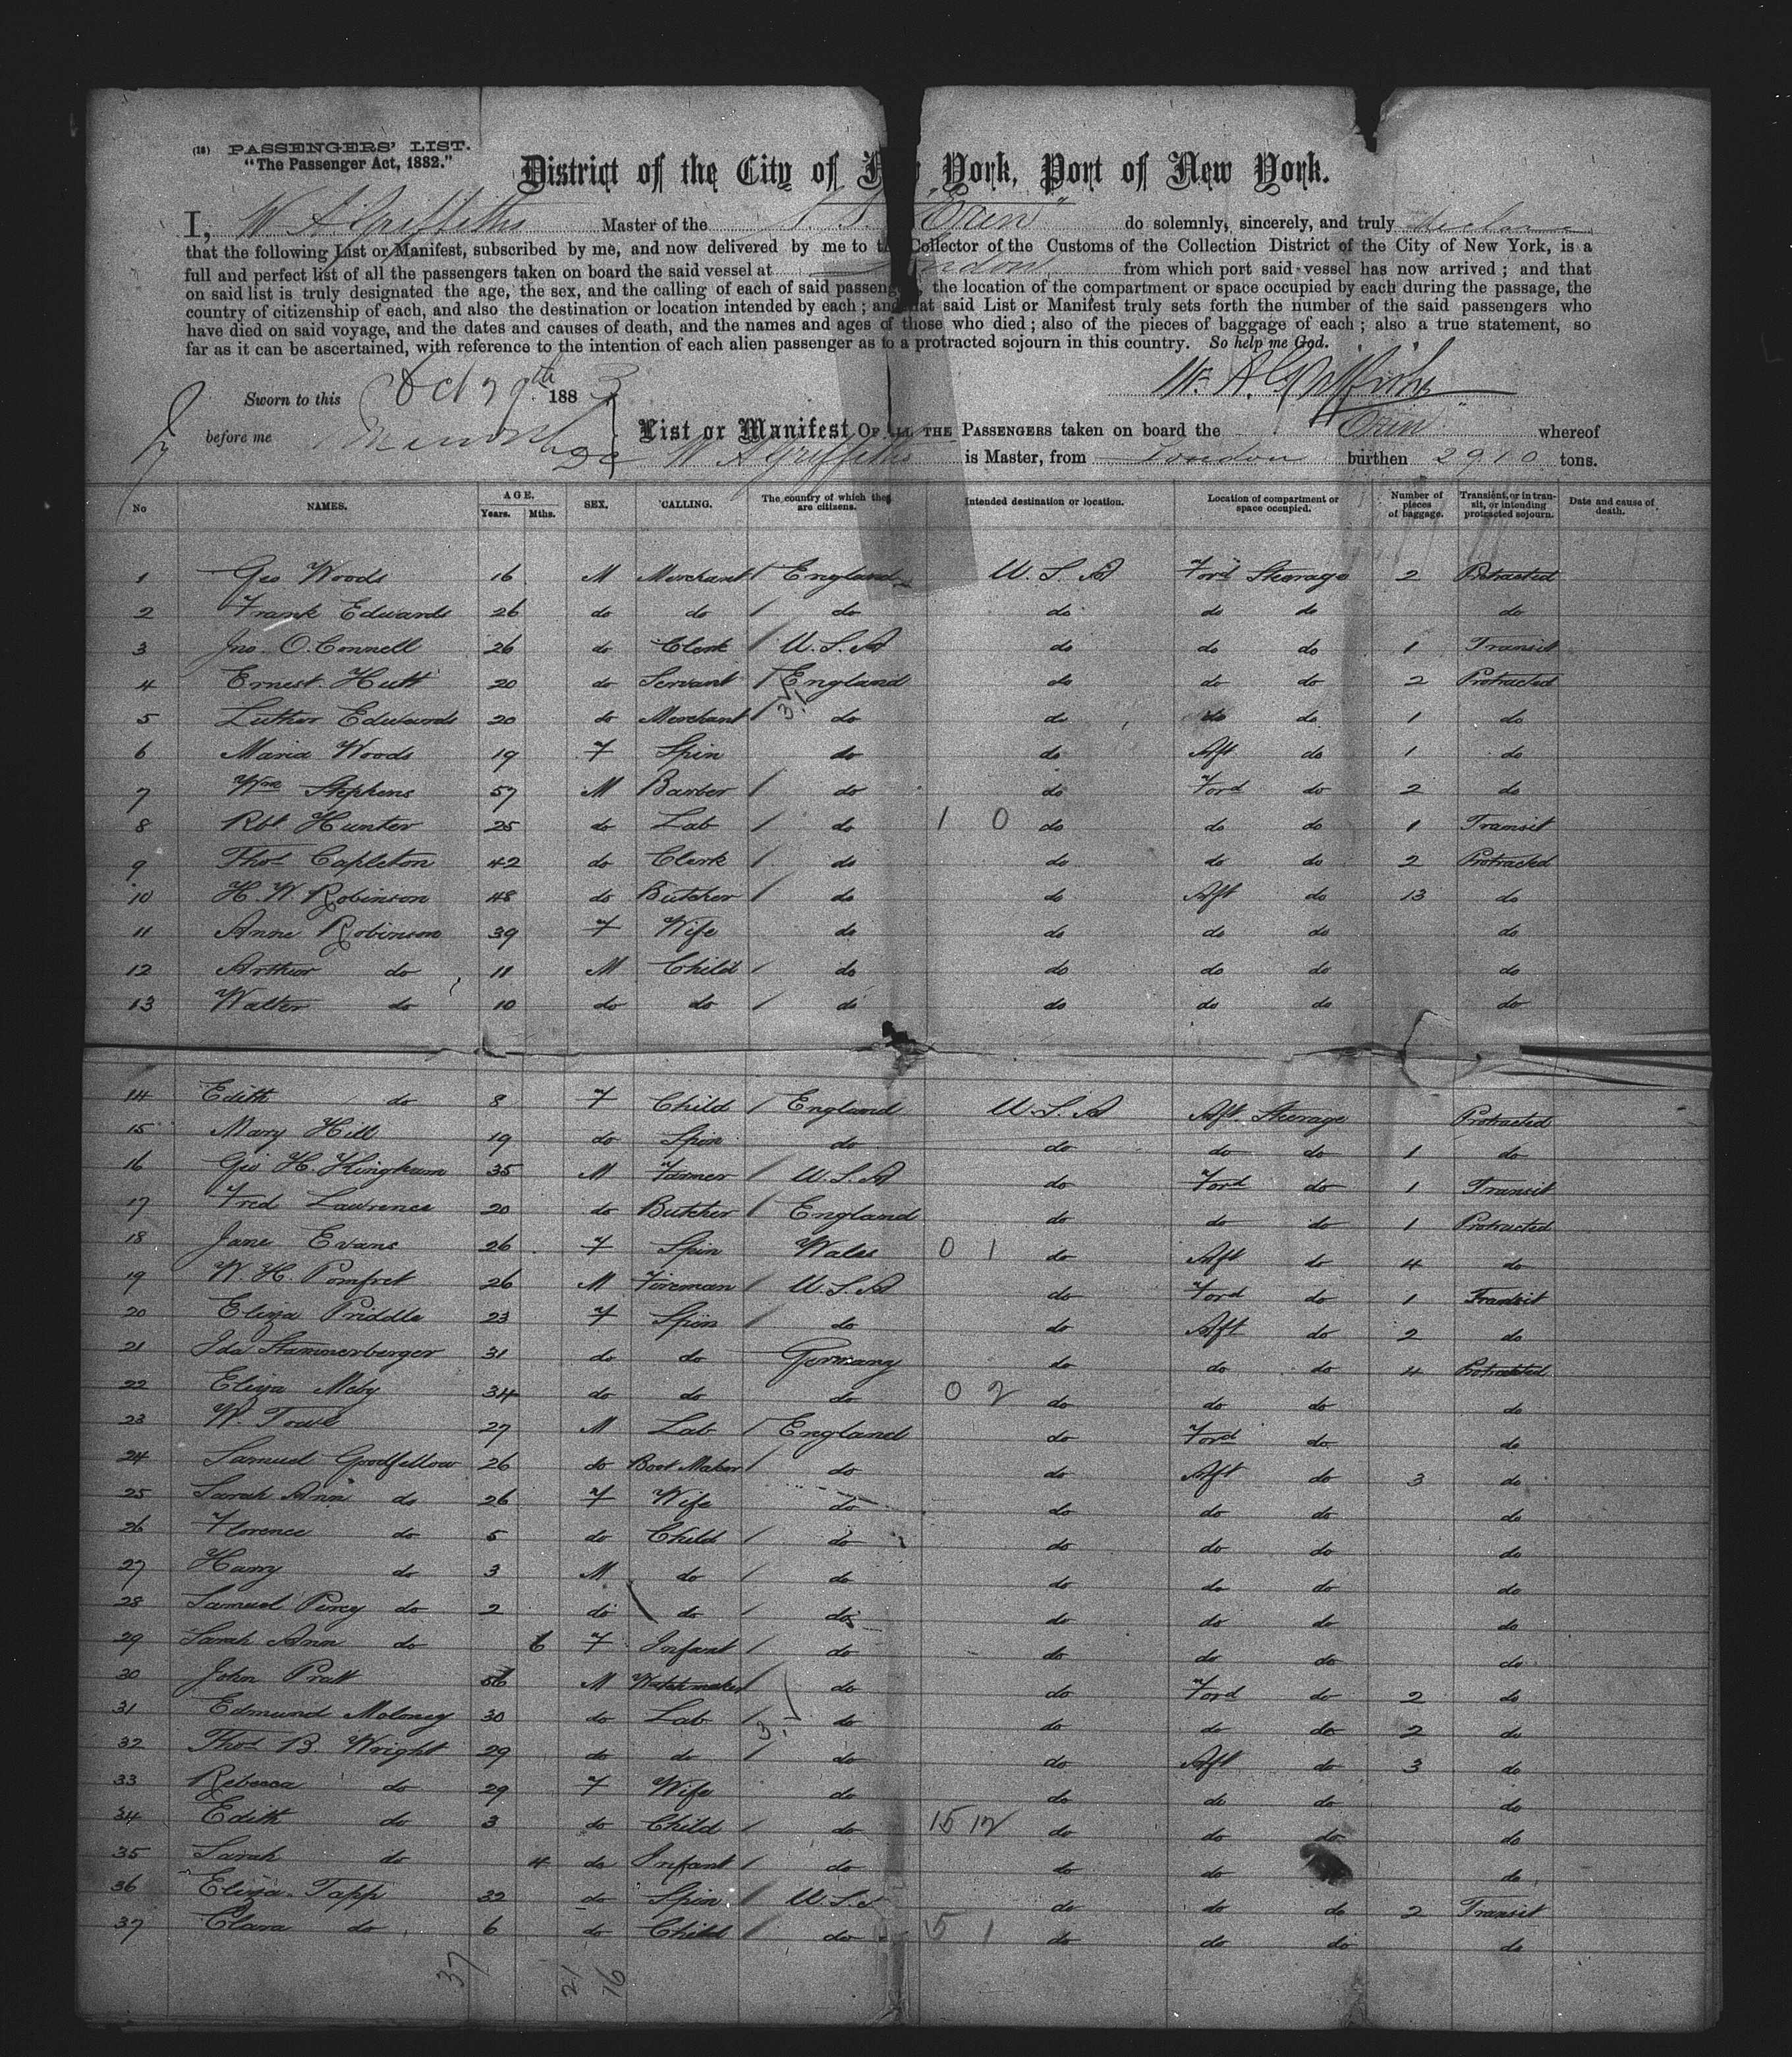 (18) PASSENGERS' LIST.
"The Passenger Act, 1882."
District of the City of New York, Port of New York.
I, W A Griffiths Master of the S. S. "Erin" do solemnly, sincerely, and truly declare
that the following List or Manifest, subscribed by me, and now delivered by me to the Collector of the Customs of the Collection District of the City of New York, is a
full and perfect list of all the passengers taken on board the said vessel at London from which port said vessel has now arrived; and that
on said list is truly designated the age, the sex, and the calling of each of said passengers, the location of the compartment or space occupied by each during the passage, the
country of citizenship of each, and also the destination or location intended by each; and that said List or Manifest truly sets forth the number of the said passengers who
have died on said voyage, and the dates and causes of death, and the names and ages of those who died; also of the pieces of baggage of each; also a true statement, so
far as it can be ascertained, with reference to the intention of each alien passenger as to a protracted sojourn in this country. So help me God.
Sworn to this Oct 29th 1883 W. A. Griffiths
before me List or Manifest OF ALL THE PASSENGERS taken on board the "Erin" whereof
W A Griffiths is Master, from London burthen 2910 tons.
No NAMES. AGE. Years. Mths. SEX. CALLING. The country of which they are citizens. Intended destination or location. Location of compartment or space occupied. Number of pieces of baggage. Transient, or in transit, or intending protracted sojourn. Date and cause of death.
1 Geo Woods 16 M Merchant / England U.S.A Ford Steerage 2 Protracted
2 Frank Edwards 26 do do / do do do do do
3 Jno. O. Connell 26 do Clerk / U.S.A do do do 1 Transit
4 Ernest Hutt 20 do Servant / England do do do 2 Protracted
5 Luther Edwards 20 do Merchant / do do do do 1 do
6 Maria Woods 19 F Spin do do Aft do 1 do
7 Wm Stephens 57 M Barber / do do Ford do 2 do
8 Rbt Hunter 25 do Lab / do 1 0 do do do 1 Transit
9 Thos Capleton 42 do Clerk / do do do do 2 Protracted
10 H. W. Robinson 48 do Butcher / do do Aft do 13 do
11 Anne Robinson 39 F Wife do do do do do
12 Arthur do 11 M Child / do do do do do
13 Walter do 10 do do / do do do do do
14 Edith do 8 F Child / England U.S.A Aft Steerage Protracted
15 Mary Hill 19 do Spin do do do do 1 do
16 Geo H. Kingham 35 M Farmer / U.S.A do Ford do 1 Transit
17 Fred Lawrence 20 do Butcher / England do do do 1 Protracted
18 Jane Evans 26 F Spin Wales 0 1 do Aft do 4 do
19 W. H. Pomfret 26 M Fireman / U.S.A do Ford do 1 Transit
20 Eliza Priddle 23 F Spin / do do Aft do 2 do
21 Ida Stammerberger 31 do do Germany do do do 4 Protracted
22 Eliza Meby 34 do do do 0 2 do do do do
23 W. Towe 27 M Lab / England do Ford do do
24 Samuel Goodfellow 26 do Boot Maker / do do Aft do 3 do
25 Sarah Ann do 26 F Wife do do do do do
26 Florence do 5 do Child / do do do do do
27 Harry do 3 M do / do do do do do
28 Samuel Percy do 2 do do / do do do do do
29 Sarah Ann do 6 F Infant / do do do do do
30 John Pratt M Watchmaker / do do Ford do 2 do
31 Edmund Moloney 30 do Lab / do do do do 2 do
32 Thos B. Wright 29 do do / do do Aft do 3 do
33 Rebecca do 29 F Wife do do do do do
34 Edith do 3 do Child / do 15 12 do do do do
35 Sarah do 4 do Infant / do do do do
36 Eliza Tapp 32 do Spin / U.S.A do do do 2 Transit
37 Clara do 6 do Child / do 5 1 do do do do
37 21 16